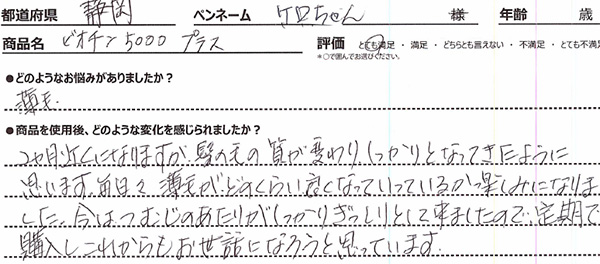 都道府県 静岡 ペンネーム ケロちゃん 様 年齢 歳
商品名 ビオチン5000 プラス 評価 とても満足・満足・どちらとも言えない・不満足・とても不満足
*○で囲んでお選びください。
●どのようなお悩みがありましたか？
薄毛.
●商品を使用後、どのような変化を感じられましたか？
2ヶ月近くになりますが、髪の毛の質が変わり、しっかりとなってきたように
思います。毎日々 薄毛がどのくらい良くなっていっているかつ楽しみになりま
した。今はつむじのあたりがしっかりぎっしりとして来ましたので、定期で
購入しこれからもお世話になろうと思っています.